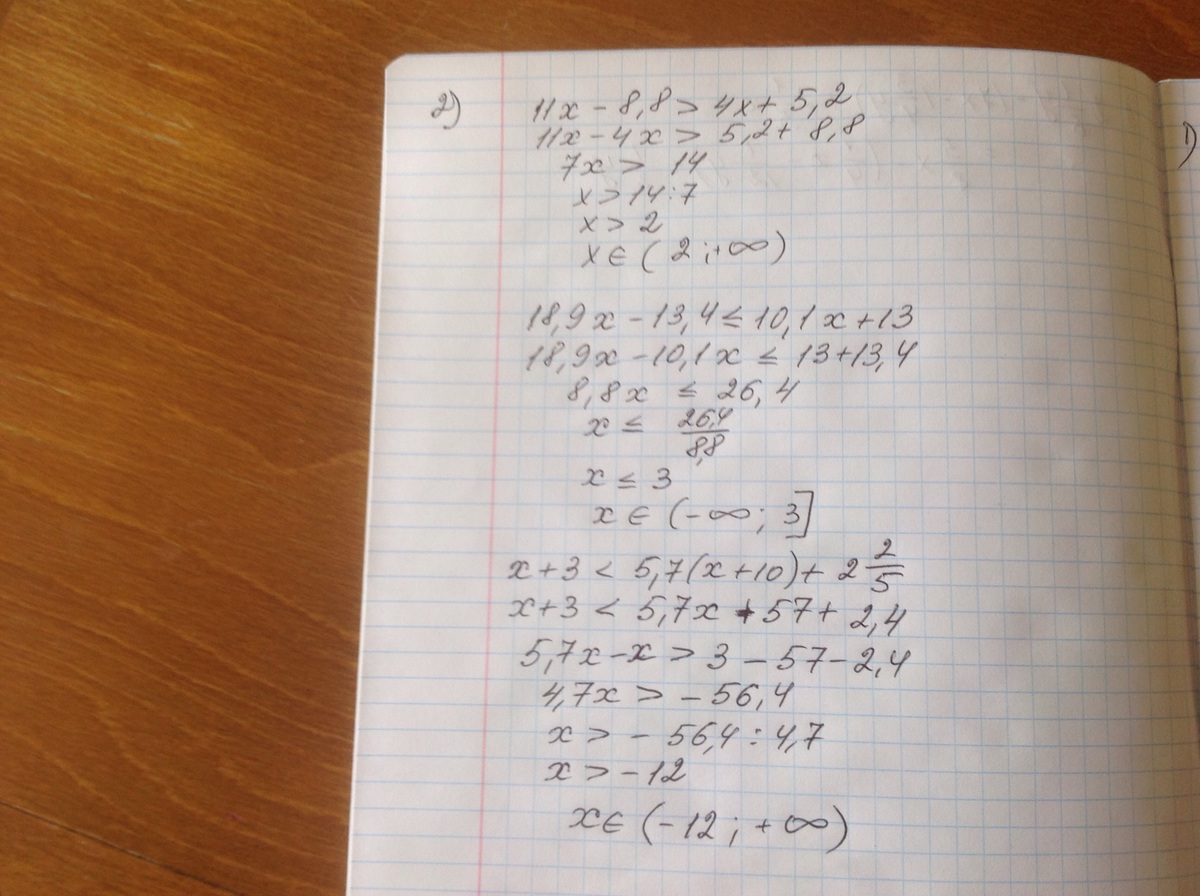 2) 11x - 8,8 > 4x + 5,2
11x - 4x > 5,2 + 8,8
7x > 14
x > 14 : 7
x > 2
x ∈ ( 2 ; +∞ )
18,9x - 13,4 ≤ 10,1x + 13
18,9x - 10,1x ≤ 13 + 13,4
8,8x ≤ 26,4
x ≤ 26,4/8,8
x ≤ 3
x ∈ (-∞; 3]
x + 3 < 5,7(x + 10) + 2 2/5
x + 3 < 5,7x + 57 + 2,4
5,7x - x > 3 - 57 - 2,4
4,7x > - 56,4
x > - 56,4 : 4,7
x > - 12
x ∈ (-12 ; + ∞)
1)